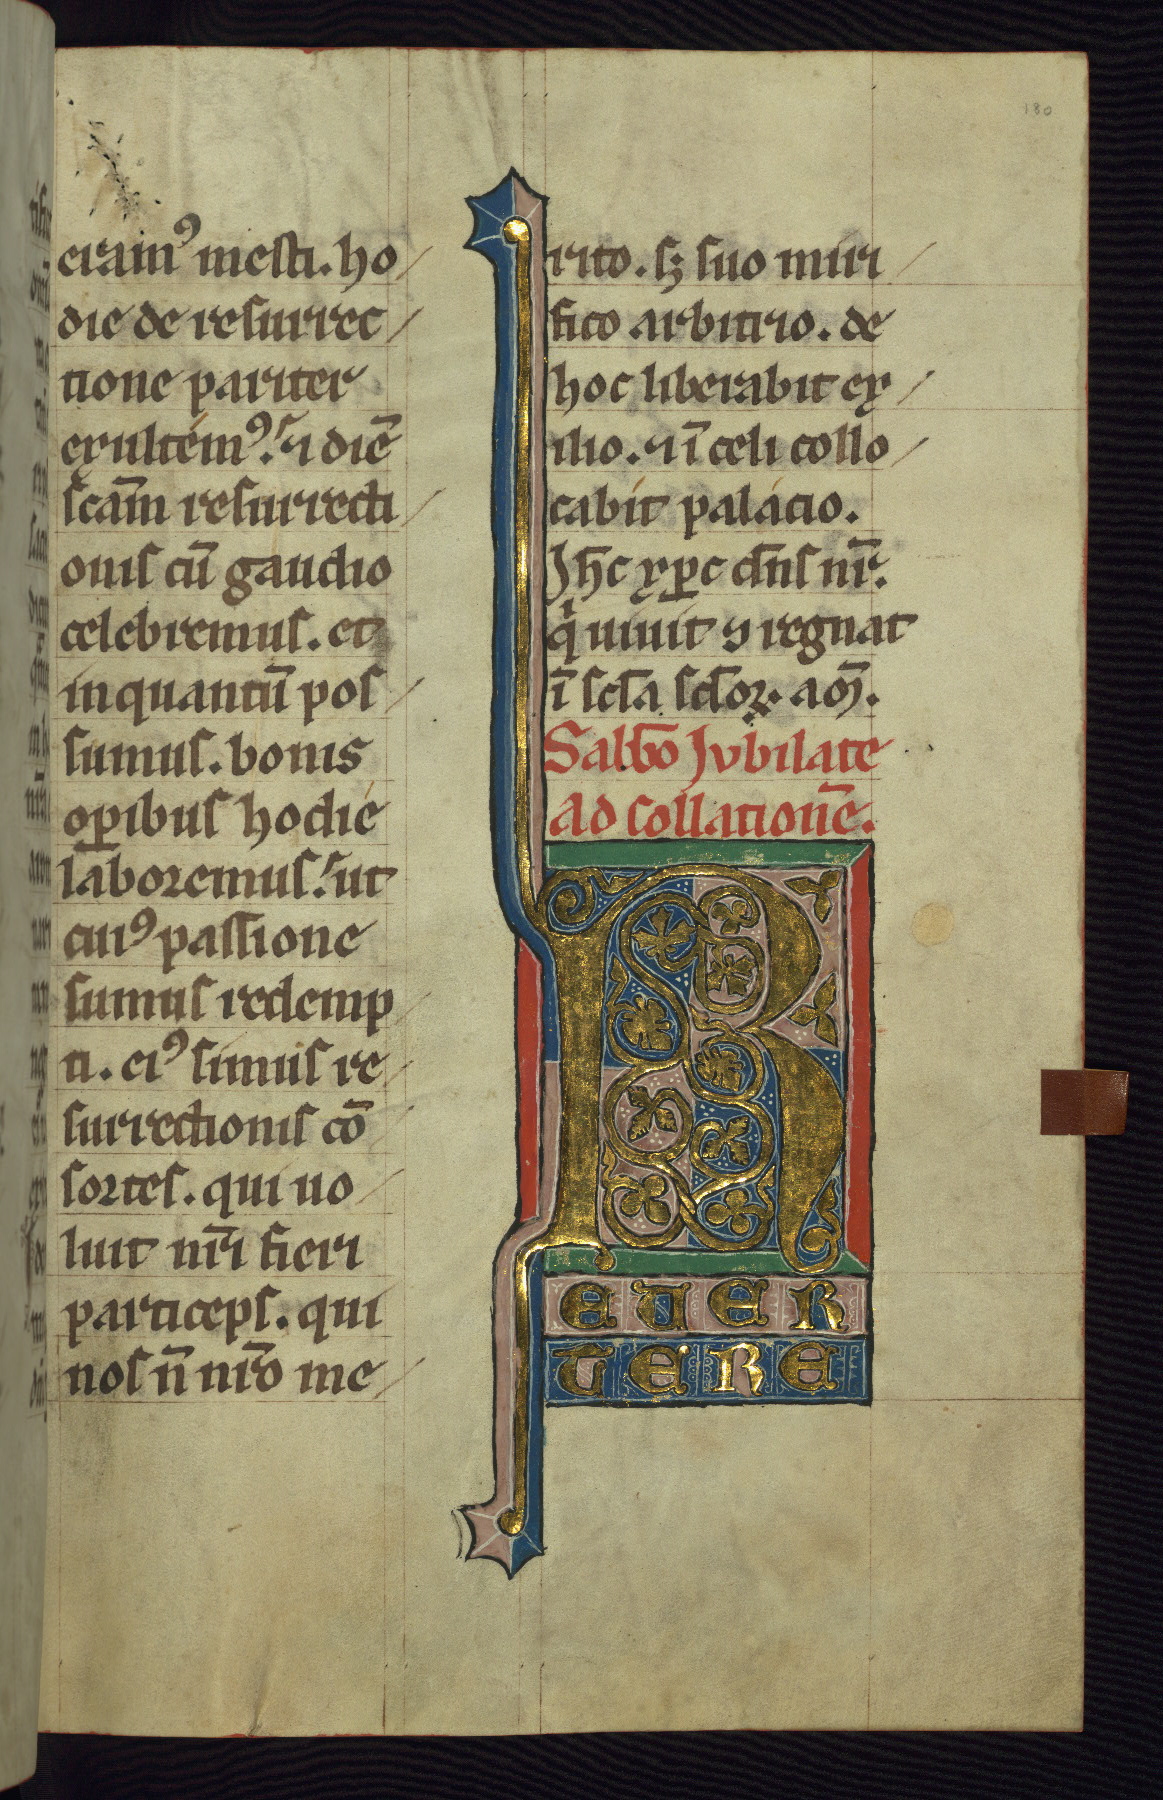 180
eram⁹ mesti. ho
die de resurrec
tione pariter
exultem⁹. ⁊ diē
scām resurrecti
onis cū gaudio
celebremus. et
inquantū pos
sumus. bonis
oꝑibus hodie
laboremus. ut
cui⁹ passione
sumus redemp
ti. ei⁹ simus re
surrectionis cō
sortes. qui uo
luit nr̄i fieri
particeps. qui
nos n̄ nr̄o me
rito. sꝫ suo miri
fico arbitrio. de
hoc liberabit ex
ilio. ⁊ ī celi collo
cabit palacio.
Ih̄c xp̄c dn̄s nr̄.
qͥ uiuit ⁊ regnat
ī scl̄a scl̄oꝝ. am̄.
Sabb̄o Jubilate
ad collationē.
R
EUER
TERE